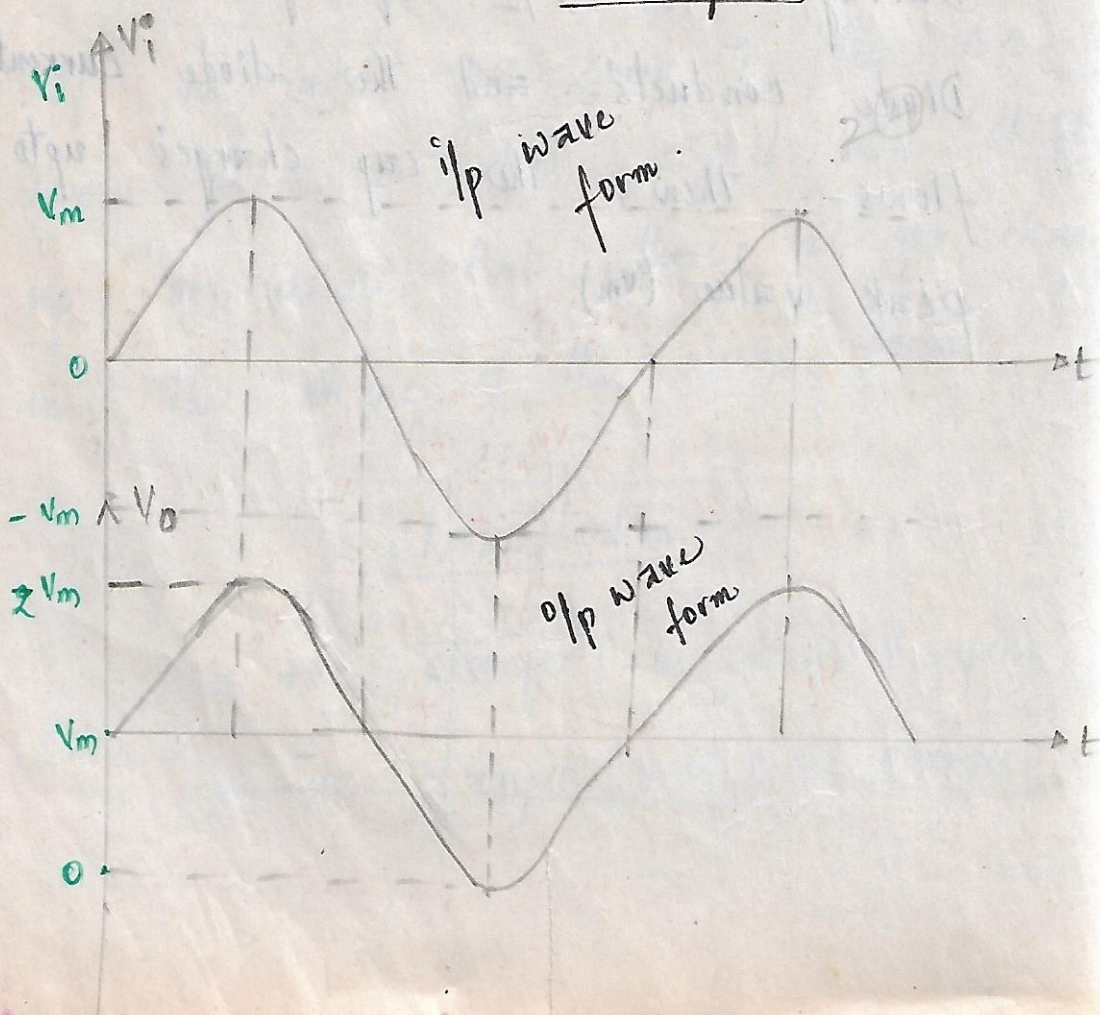 Vi
Vi
i/p wave
form.
Vm
0
t
-Vm
Vo
2Vm
o/p wave
form
Vm
t
0